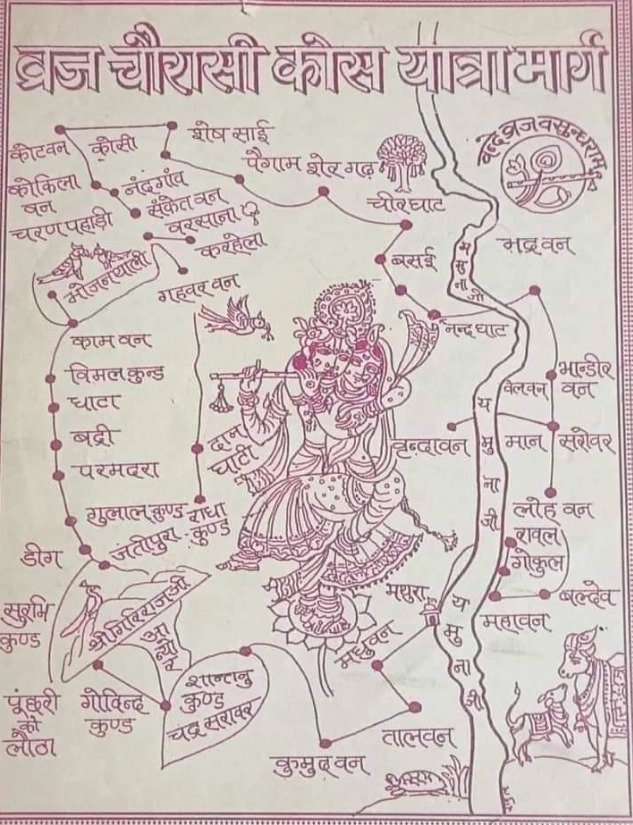 व्रज चौरासी कोस यात्रा मार्ग
वन्दे व्रज वसुन्धराम्
कोटवन
कोसी
शेष साई
पैगाम
शेरगढ़
चीरघाट
कोकिला
वन
नंदगाँव
संकेत वन
चरणपहाड़ी
वरसाना
करहेला
गहवर वन
भोजनथाली
बसई
भद्रवन
यमुना जी
नन्द घाट
कामवन
विमलकुन्ड
घाटा
बद्री
परमदरा
गुलाल कुण्ड
राधा
कुण्ड
जतीपुरा
दान
घाटी
भान्डीर
वन
वेलवन
वृन्दावन
मान सरोवर
यमुना जी
लोह वन
रावल
गोकुल
बल्देव
महावन
डीग
सुरभि
कुण्ड
श्री गिरिराज जी
आन्यौर
मथुरा
मधुवन
यमुना जी
पूंछरी
को
लौठा
गोविन्द
कुण्ड
शान्तनु
कुण्ड
चन्द्र सरोवर
कुमुद वन
तालवन